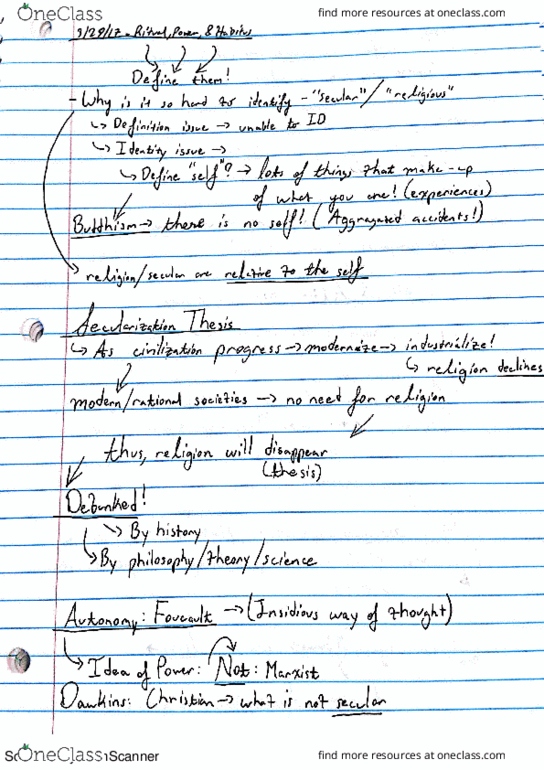 OneClass
find more resources at oneclass.com
3/28/17 - Ritual, Power, & Habitus
Define them!
- Why is it so hard to identify - "secular"/ "religious"
↳ Definition issue → unable to ID
↳ Identity issue →
↳ Define "self"? → lots of things that make-up
of what you are! (experiences)
Buddhism → there is no self! (Aggragated accidents!)
religion/secular are relative to the self
Secularization Thesis
↳ As civilization progress → modernize → industrialize!
↳ religion declines
modern/rational societies → no need for religion
thus, religion will disappear
(thesis)
Debunked!
↳ By history
↳ By philosophy/theory/science
Autonomy: Foucault → (Insidious way of thought)
↳ Idea of Power: Not: Marxist
Dawkins: Christian → what is not secular
OneClass
Scanner
find more resources at oneclass.com